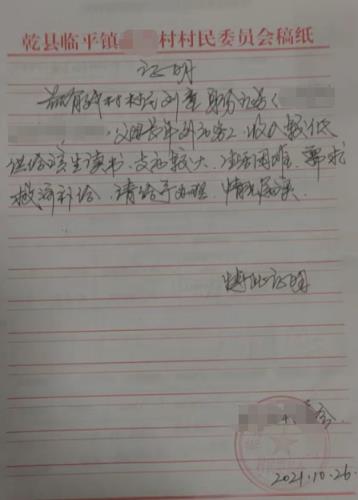 乾县临平镇 村村民委员会稿纸
证明
兹有我村村民刘 身份证号(
父母长年外出务工 收入较低
供给该生读书 支出较大 生活困难 要求
救济补给 请给予办理 情况属实
特此证明
会
2021.10.26